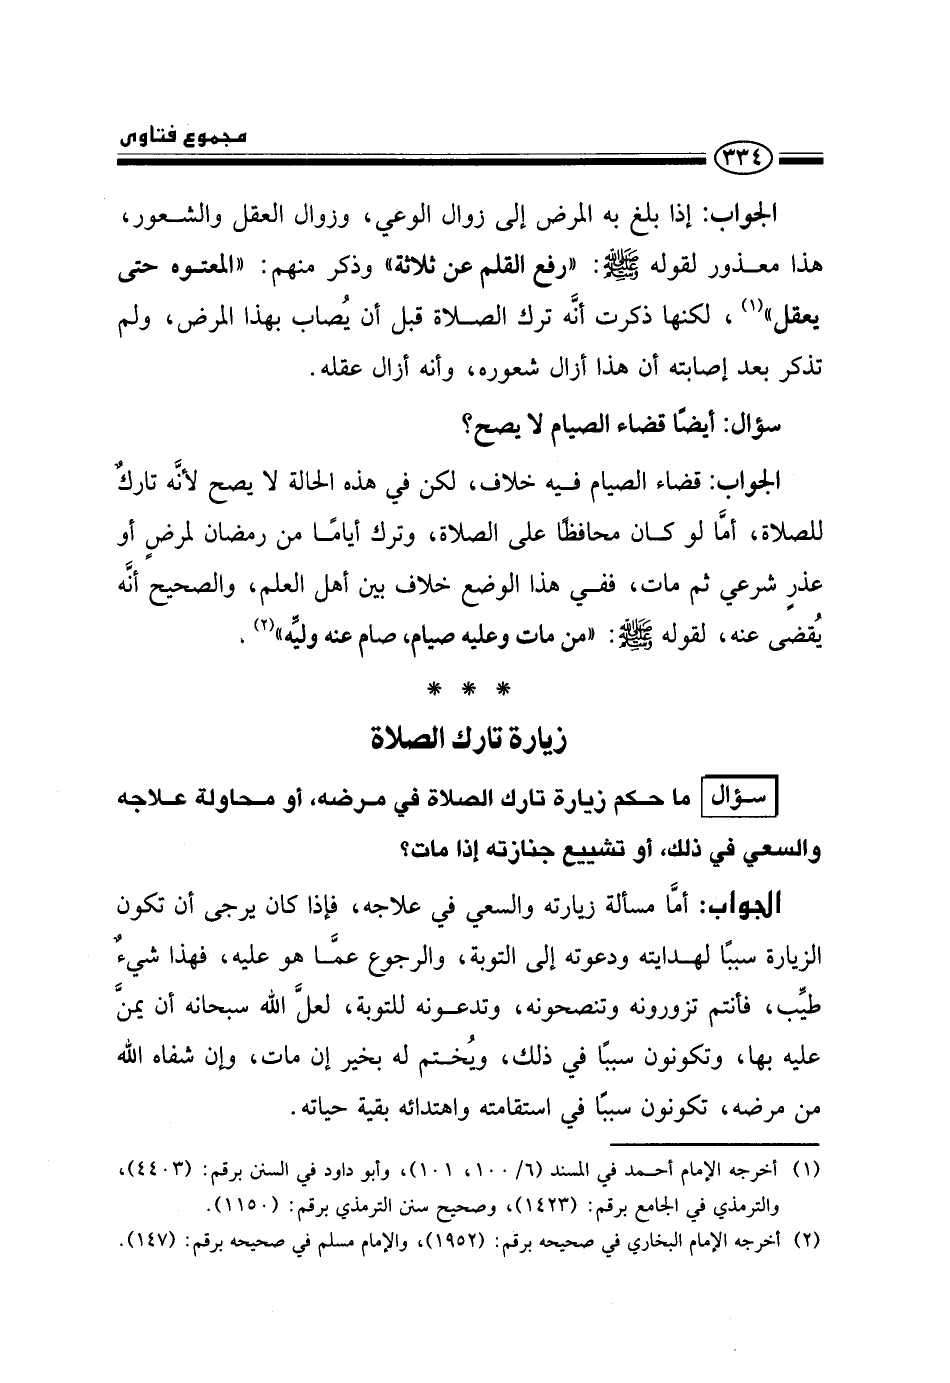 مجموع فتاوى
٣٣٤
الجواب: إذا بلغ به المرض إلى زوال الوعي، وزوال العقل والشعور،
هذا معذور لقوله ﷺ: «رفع القلم عن ثلاثة» وذكر منهم: «المعتوه حتى
يعقل»(١)، لكنها ذكرت أنَّه ترك الصلاة قبل أن يُصاب بهذا المرض، ولم
تذكر بعد إصابته أن هذا أزال شعوره، وأنه أزال عقله.
سؤال: أيضًا قضاء الصيام لا يصح؟
الجواب: قضاء الصيام فيه خلاف، لكن في هذه الحالة لا يصح لأنَّه تاركٌ
للصلاة، أمَّا لو كان محافظًا على الصلاة، وترك أيامًا من رمضان لمرضٍ أو
عذرٍ شرعي ثم مات، ففي هذا الوضع خلاف بين أهل العلم، والصحيح أنَّه
يُقضى عنه، لقوله ﷺ: «من مات وعليه صيام، صام عنه وليُّه»(٢).
* * *
زيارة تارك الصلاة
سؤال ما حكم زيارة تارك الصلاة في مرضه، أو محاولة علاجه
والسعي في ذلك، أو تشييع جنازته إذا مات؟
الجواب: أمَّا مسألة زيارته والسعي في علاجه، فإذا كان يرجى أن تكون
الزيارة سببًا لهدايته ودعوته إلى التوبة، والرجوع عمَّا هو عليه، فهذا شيءٌ
طيِّب، فأنتم تزورونه وتنصحونه، وتدعونه للتوبة، لعلَّ الله سبحانه أن يمنَّ
عليه بها، وتكونون سببًا في ذلك، ويُختم له بخير إن مات، وإن شفاه الله
من مرضه، تكونون سببًا في استقامته واهتدائه بقية حياته.
(١) أخرجه الإمام أحمد في المسند (٦/ ١٠٠، ١٠١)، وأبو داود في السنن برقم: (٤٤٠٣)،
والترمذي في الجامع برقم: (١٤٢٣)، وصحيح سنن الترمذي برقم: (١١٥٠).
(٢) أخرجه الإمام البخاري في صحيحه برقم: (١٩٥٢)، والإمام مسلم في صحيحه برقم: (١٤٧).